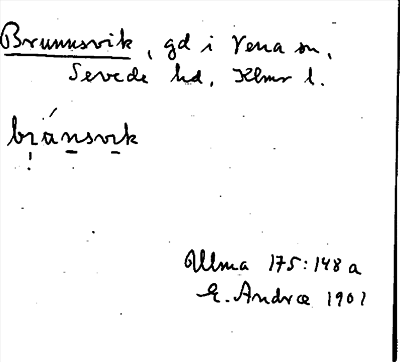 Brunnsvik, gd i Vena sn,
Sevede hd, Klmr l.
bránsvik
Ulma 175:148 a
E. Andræ 1901